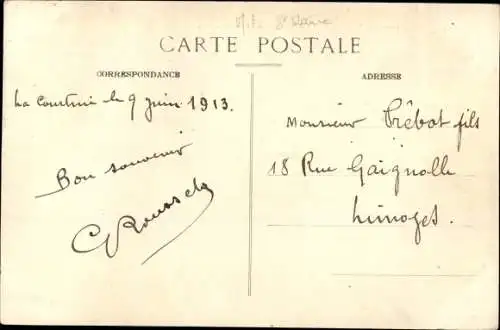 CARTE POSTALE
CORRESPONDANCE
ADRESSE
La Courtine le 9 Juin 1913.
Bon souvenir
G Rousselg
Monsieur Trêbat fils
18 Rue Gaignolle
Limoges.